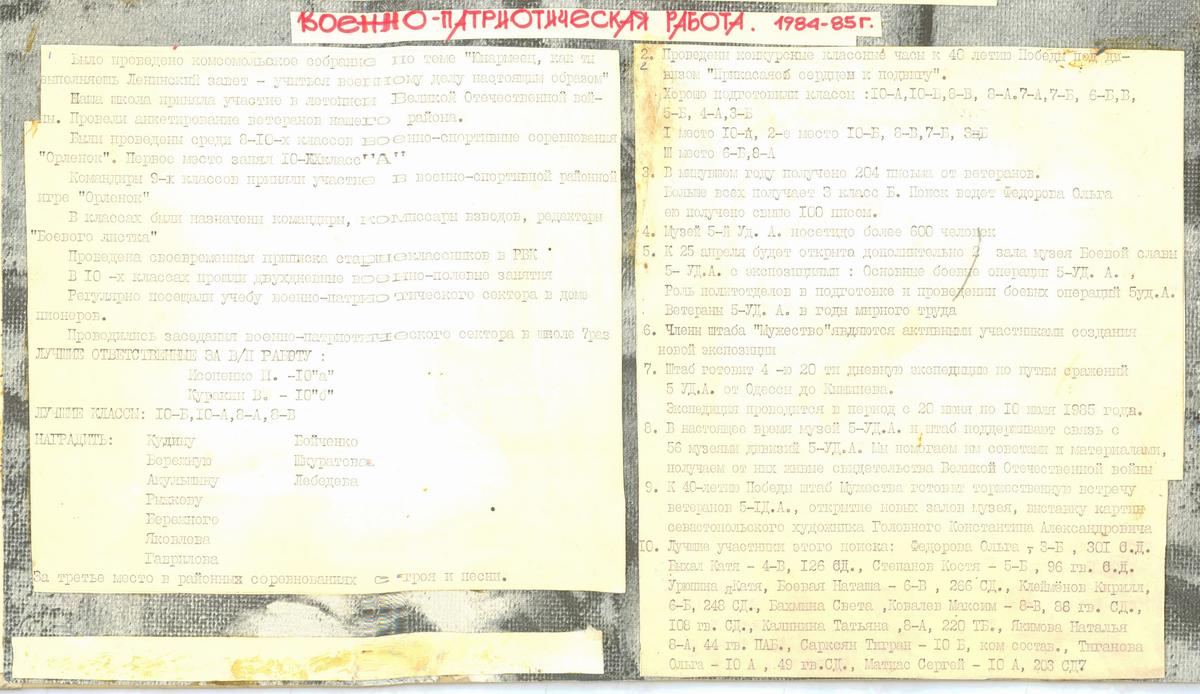 ВОЕННО-ПАТРИОТИЧЕСКАЯ РАБОТА. 1984-85г.
Было проведено комсомольское собрание по теме "Юнармеец, как ты
выполняешь Ленинский завет - учиться военному делу настоящим образом"
Наша школа приняла участие в летописи Великой Отечественной вой-
ны. Провели анкетирование ветеранов нашего района.
Были проведены среди 8-10-х классов военно-спортивные соревнования
"Орленок". Первое место занял 10-класс "А"
Командиры 9-х классов приняли участие в военно-спортивной районной
игре "Орленок"
В классах были назначены командиры, комиссары взводов, редакторы
"Боевого листка"
Проведена своевременная приписка старшеклассников в РВК
В 10 -х классах прошли двухдневные военно-полевые занятия
Регулярно посещали учебу военно-патриотического сектора в доме
пионеров.
Проводились заседания военно-патриотического сектора в школе 7раз
ЛУЧШИЕ ОТВЕТСТВЕННЫЕ ЗА В/П РАБОТУ :
Исопенко П. -10"а"
Куракин В. - 10"б"
ЛУЧШИЕ КЛАССЫ: 10-Б,10-А,8-А,8-В
НАГРАДИТЬ: Кудину Бойченко
Бережную Шкуратова
Акулышину Лебедева
Рыжкову
Бережного
Яковлева
Гаврилова
За третье место в районных соревнованиях строя и песни.
2. Проведены конкурсные классные часы к 40 летию Победы под де-
визом "Прикасаясь сердцем к подвигу".
Хорошо подготовили классы :10-А,10-Б,8-В, 8-А.7-А,7-Б, 6-Б,В,
5-Б, 4-А,3-Б
I место 10-А, 2-е место 10-Б, 8-В,7-Б, 3-Б
Ш место 6-Б,8-А
3. В минувшем году получено 204 письма от ветеранов.
Больше всех получает 3 класс Б. Поиск ведет Федорова Ольга
ею получено свыше 100 писем.
4. Музей 5-й Уд. А. посетило более 600 человек
5. К 25 апреля будет открыто дополнительно 2 зала музея Боевой славы
5- УД.А. с экспозициями : Основные боевые операции 5-УД. А. ,
Роль политотделов в подготовке и проведении боевых операций 5уд.А.
Ветераны 5-УД. А. в годы мирного труда
6. Члены штаба "Мужество"являются активными участниками создания
новой экспозиции
7. Штаб готовит 4 -ю 20 ти дневную экспедицию по путям сражений
5 УД.А. от Одессы до Кишинева.
Экспедиция проводится в период с 20 июня по 10 июля 1985 года.
8. В настоящее время музей 5-УД.А. и штаб поддерживают связь с
56 музеями дивизий 5-УД.А. Мы помогаем им советами и материалами,
получаем от них живые свидетельства Великой Отечественной войны
9. К 40-летию Победы штаб Мужества готовит торжественную встречу
ветеранов 5-УД.А., открытие новых залов музея, выставку картин
севастопольского художника Головного Константина Александровича
10. Лучшие участники этого поиска: Федорова Ольга - 3-Б , 301 С.Д.
Выхал Катя - 4-В, 126 СД., Степанов Костя - 5-Б , 96 гв. С.Д.
Урюпина Катя, Боевая Наташа - 6-В , 266 СД., Клеймёнов Кирилл,
6-Б, 248 СД., Бахмина Света ,Ковалев Максим - 8-В, 86 гв. СД.,
108 гв. СД., Калинина Татьяна ,8-А, 220 ТБ., Якимова Наталья
8-А, 44 гв. ПАБ., Сарксян Тигран - 10 Б, ком состав., Тиганова
Ольга - 10 А , 49 гв.СД., Маткас Сергей - 10 А, 203 СД